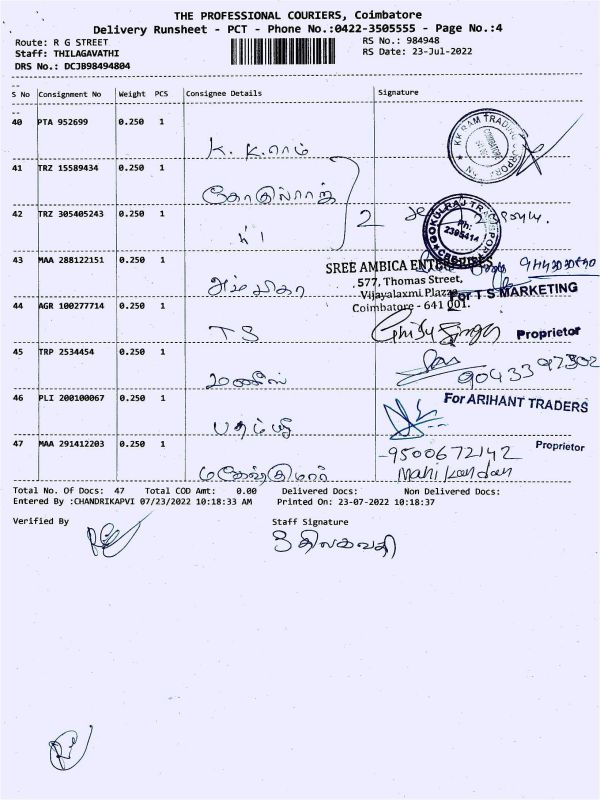 THE PROFESSIONAL COURIERS, Coimbatore
Delivery Runsheet - PCT - Phone No.:0422-3505555 - Page No.:4
Route: R G STREET
RS No.: 984948
Staff: THILAGAVATHI
RS Date: 23-Jul-2022
DRS No.: DCJB98494804
S No Consignment No Weight PCS Consignee Details Signature
40 PTA 952699 0.250 1
K. K. ராம்
KK RAM TRADING CORPORATION
COIMBATORE
41 TRZ 15589434 0.250 1
கோகுல்ராஜ்
42 TRZ 305405243 0.250 1
2
GOKULRAJ TRANSPORT
Ph: 2395414
43 MAA 288122151 0.250 1
அம்பிகா
SREE AMBICA ENTERPRISES
577, Thomas Street,
Vijayalaxmi Plazza
Coimbatore - 641 001.
44 AGR 100277714 0.250 1
TS
For T S MARKETING
Proprietor
45 TRP 2534454 0.250 1
மணீஸ்
9043397302
46 PLI 200100067 0.250 1
பதம்ஸ்ரீ
For ARIHANT TRADERS
Proprietor
47 MAA 291412203 0.250 1
மகேஷ்குமார்
9500672142
Manikandan
Total No. Of Docs: 47 Total COD Amt: 0.00 Delivered Docs: Non Delivered Docs:
Entered By :CHANDRIKAPVI 07/23/2022 10:18:33 AM Printed On: 23-07-2022 10:18:37
Verified By
Staff Signature
திலகவதி